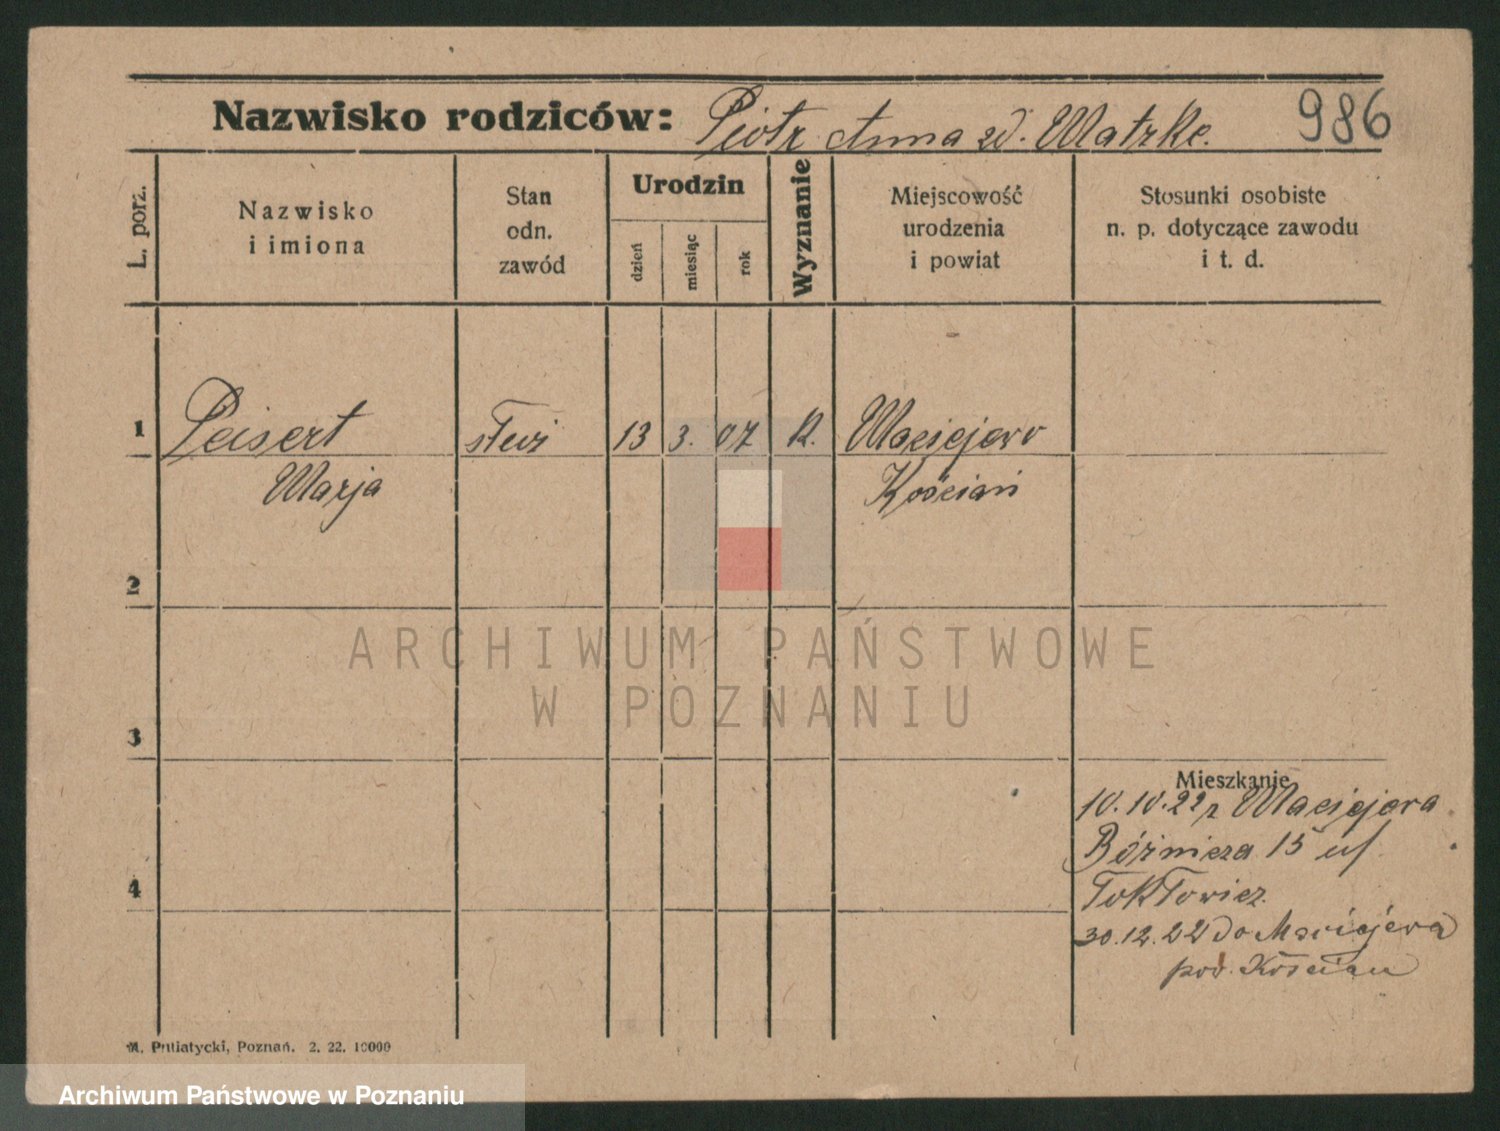 986
Nazwisko rodziców: Piotr Anna zd. Matzke.
L. porz.
Nazwisko
i imiona
Stan
odn.
zawód
Urodzin
dzień
miesiąc
rok
Wyznanie
Miejscowość
urodzenia
i powiat
Stosunki osobiste
n. p. dotyczące zawodu
i t. d.
1 Peisert służ 13 3. 07 k. Maciejewo
Marja Kościan
2
ARCHIWUM PAŃSTWOWE
W POZNANIU
3
Mieszkanie
10.10.22 z Maciejewa
Bóżnicza 15 u/
4
30.12.22 do Maciejewa
pow. Kościan
M. Putiatycki, Poznań. 2. 22. 10000
Archiwum Państwowe w Poznaniu